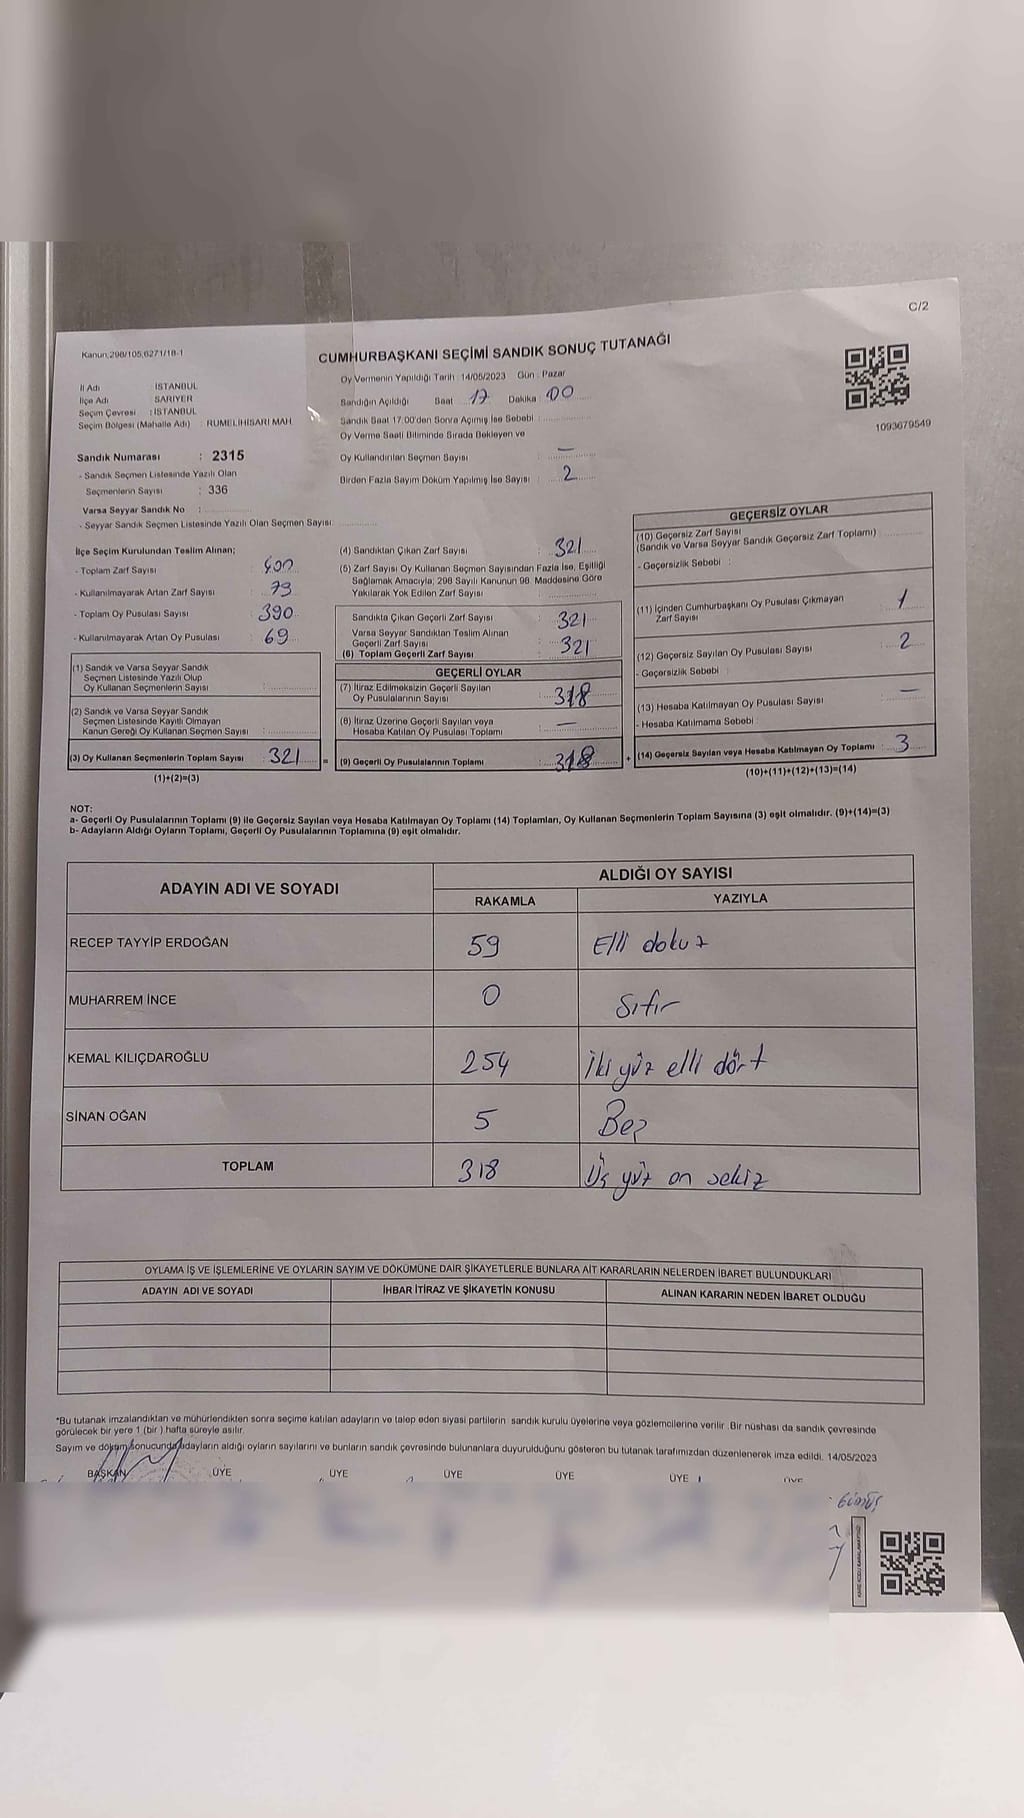 C/2
Kanun:298/105,6271/18-1
CUMHURBAŞKANI SEÇİMİ SANDIK SONUÇ TUTANAĞI
1093679549
İl Adı İSTANBUL
İlçe Adı SARIYER
Seçim Çevresi : İSTANBUL
Seçim Bölgesi (Mahalle Adı) : RUMELİHİSARI MAH
Sandık Numarası : 2315
- Sandık Seçmen Listesinde Yazılı Olan
Seçmenlerin Sayısı : 336
Varsa Seyyar Sandık No :
- Seyyar Sandık Seçmen Listesinde Yazılı Olan Seçmen Sayısı:
Oy Vermenin Yapıldığı Tarih :14/05/2023 Gün : Pazar
Sandığın Açıldığı Saat 17 Dakika : 00
Sandık Saat 17:00'den Sonra Açımış İse Sebebi :
Oy Verme Saati Bitiminde Sırada Bekleyen ve
Oy Kullandırılan Seçmen Sayısı : —
Birden Fazla Sayım Döküm Yapılmış İse Sayısı : 2
İlçe Seçim Kurulundan Teslim Alınan;
- Toplam Zarf Sayısı : 400
- Kullanılmayarak Artan Zarf Sayısı : 79
- Toplam Oy Pusulası Sayısı : 390
- Kullanılmayarak Artan Oy Pusulası : 69
(1) Sandık ve Varsa Seyyar Sandık
Seçmen Listesinde Yazılı Olup
Oy Kullanan Seçmenlerin Sayısı :
(2) Sandık ve Varsa Seyyar Sandık
Seçmen Listesinde Kayıtlı Olmayan
Kanun Gereği Oy Kullanan Seçmen Sayısı :
(3) Oy Kullanan Seçmenlerin Toplam Sayısı : 321
(1)+(2)=(3)
=
(4) Sandıktan Çıkan Zarf Sayısı : 321
(5) Zarf Sayısı Oy Kullanan Seçmen Sayısından Fazla İse, Eşitliği
Sağlamak Amacıyla; 298 Sayılı Kanunun 98. Maddesine Göre
Yakılarak Yok Edilen Zarf Sayısı :
Sandıkta Çıkan Geçerli Zarf Sayısı : 321
Varsa Seyyar Sandıktan Teslim Alınan
Geçerli Zarf Sayısı
(6) Toplam Geçerli Zarf Sayısı : 321
GEÇERLİ OYLAR
(7) İtiraz Edilmeksizin Geçerli Sayılan
Oy Pusulalarının Sayısı : 318
(8) İtiraz Üzerine Geçerli Sayılan veya
Hesaba Katılan Oy Pusulası Toplamı : —
(9) Geçerli Oy Pusulalarının Toplamı : 318
+
GEÇERSİZ OYLAR
(10) Geçersiz Zarf Sayısı
(Sandık ve Varsa Seyyar Sandık Geçersiz Zarf Toplamı)
- Geçersizlik Sebebi :
(11) İçinden Cumhurbaşkanı Oy Pusulası Çıkmayan
Zarf Sayısı 1
(12) Geçersiz Sayılan Oy Pusulası Sayısı : 2
- Geçersizlik Sebebi :
(13) Hesaba Katılmayan Oy Pusulası Sayısı : —
- Hesaba Katılmama Sebebi :
(14) Geçersiz Sayılan veya Hesaba Katılmayan Oy Toplamı : 3
(10)+(11)+(12)+(13)=(14)
NOT:
a- Geçerli Oy Pusulalarının Toplamı (9) ile Geçersiz Sayılan veya Hesaba Katılmayan Oy Toplamı (14) Toplamları, Oy Kullanan Seçmenlerin Toplam Sayısına (3) eşit olmalıdır. (9)+(14)=(3)
b- Adayların Aldığı Oyların Toplamı, Geçerli Oy Pusulalarının Toplamına (9) eşit olmalıdır.
ADAYIN ADI VE SOYADI ALDIĞI OY SAYISI
RAKAMLA YAZIYLA
RECEP TAYYİP ERDOĞAN 59 Elli dokuz
MUHARREM İNCE 0 Sıfır
KEMAL KILIÇDAROĞLU 254 İki yüz elli dört
SİNAN OĞAN 5 Beş
TOPLAM 318 Üç yüz on sekiz
OYLAMA İŞ VE İŞLEMLERİNE VE OYLARIN SAYIM VE DÖKÜMÜNE DAİR ŞİKAYETLERLE BUNLARA AİT KARARLARIN NELERDEN İBARET BULUNDUKLARI
ADAYIN ADI VE SOYADI İHBAR İTİRAZ VE ŞİKAYETİN KONUSU ALINAN KARARIN NEDEN İBARET OLDUĞU
*Bu tutanak imzalandıktan ve mühürlendikten sonra seçime katılan adayların ve talep eden siyasi partilerin sandık kurulu üyelerine veya gözlemcilerine verilir. Bir nüshası da sandık çevresinde
görülecek bir yere 1 (bir ) hafta süreyle asılır.
Sayım ve döküm sonucunda adayların aldığı oyların sayılarını ve bunların sandık çevresinde bulunanlara duyurulduğunu gösteren bu tutanak tarafımızdan düzenlenerek imza edildi. 14/05/2023
BAŞKAN ÜYE ÜYE ÜYE ÜYE ÜYE ÜYE
KARE KODU KARALAMAYINIZ